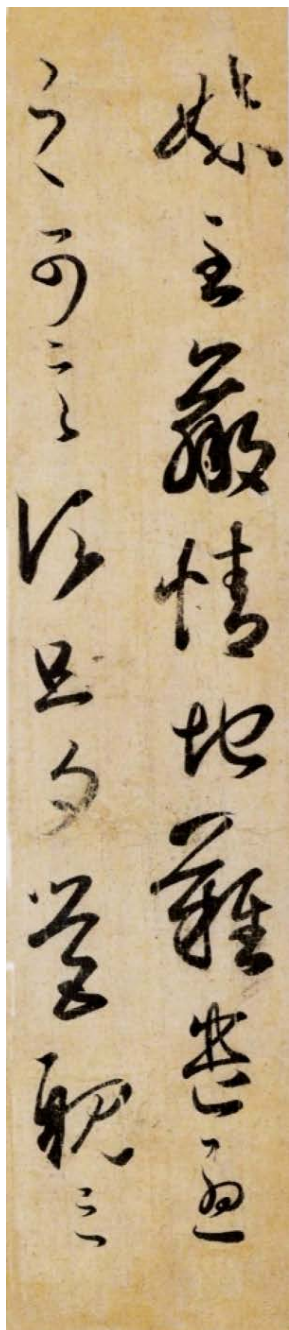 妹至羸情地難遣憂
之可言須旦夕營視之